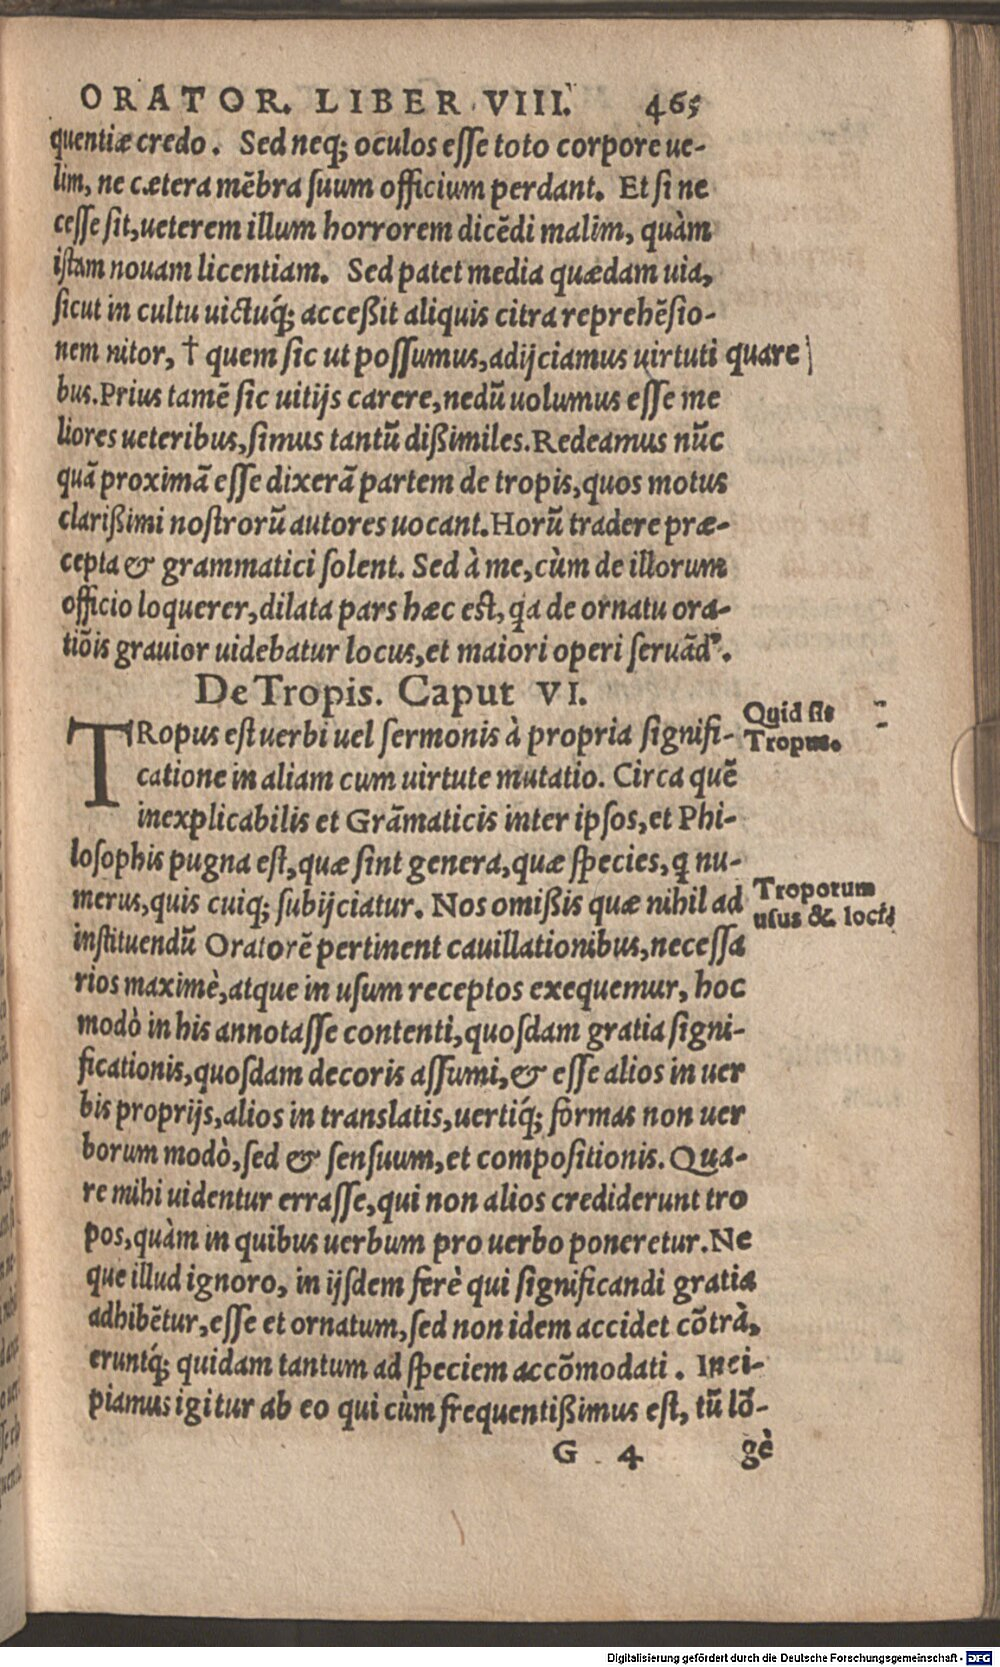 ORATOR. LIBER VIII. 465
quentiæ credo. Sed neq; oculos esse toto corpore ue-
lim, ne cætera mẽbra suum officium perdant. Et si ne
cesse sit, ueterem illum horrorem dicẽdi malim, quàm
istam nouam licentiam. Sed patet media quædam uia,
sicut in cultu uictuq́; acceßit aliquis citra reprehẽsio-
nem nitor, † quem sic ut possumus, adijciamus uirtuti quare
bus. Prius tamẽ sic uitijs carere, nedũ uolumus esse me
liores ueteribus, simus tantũ dißimiles. Redeamus nũc
quã proximã esse dixerã partem de tropis, quos motus
clarißimi nostrorũ autores uocant. Horũ tradere præ-
cepta & grammatici solent. Sed à me, cùm de illorum
officio loquerer, dilata pars hæc est, qa de ornatu ora-
tiõis grauior uidebatur locus, et maiori operi seruãdꝰ.
De Tropis. Caput VI.
TRopus est uerbi uel sermonis à propria signifi-
Quid sit
Tropus.
catione in aliam cum uirtute mutatio. Circa quẽ
inexplicabilis et Grãmaticis inter ipsos, et Phi-
losophis pugna est, quæ sint genera, quæ species, q nu-
merus, quis cuiq; subijciatur. Nos omißis quæ nihil ad
Troporum
usus & loci
instituendũ Oratorẽ pertinent cauillationibus, necessa
rios maximè, atque in usum receptos exequemur, hoc
modò in his annotasse contenti, quosdam gratia signi-
ficationis, quosdam decoris assumi, & esse alios in uer
bis proprijs, alios in translatis, uertiq́; formas non uer
borum modò, sed & sensuum, et compositionis. Qua-
re mihi uidentur errasse, qui non alios crediderunt tro
pos, quàm in quibus uerbum pro uerbo poneretur. Ne
que illud ignoro, in ijsdem ferè qui significandi gratia
adhibẽtur, esse et ornatum, sed non idem accidet cõtrà,
eruntq́; quidam tantum ad speciem accõmodati. Inci-
piamus igitur ab eo qui cùm frequentißimus est, tũ lõ-
G 4 gè
Digitalisierung gefördert durch die Deutsche Forschungsgemeinschaft - DFG